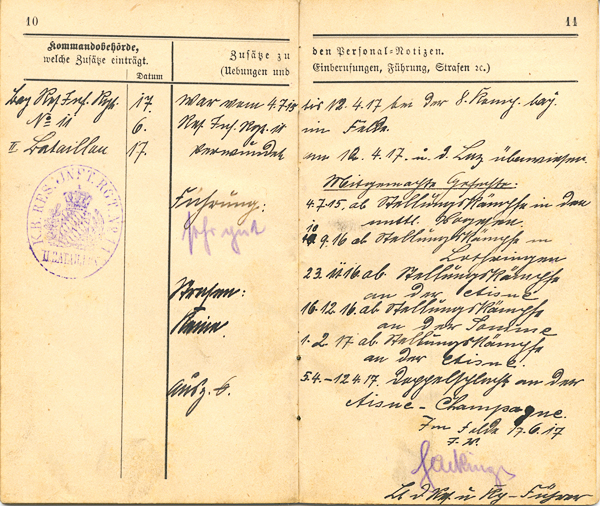 10
Kommandobehörde,
welche Zusätze einträgt.
Datum
Zusätze zu
(Uebungen und
11
den Personal-Notizen.
Einberufungen, Führung, Strafen ꝛc.)
Bay. Res. Inf. Rgt.
No 11
II Bataillon
17.
6.
17.
K.B. RES. INFT. RGT. No 11
II. BATAILLON
War vom 4.7.15 bis 12.4.17 bei der 8. Komp. bay.
Res. Inf. Rgt. 11 im Felde.
verwundet am 12.4.17. u. d. Laz überwiesen
Führung:
sehr gut
Strafen:
Keine.
Ausz. 6.
Mitgemachte Gefechte:
4.7.15 ab Stellungskämpfe in den
mittl. Vogesen
10.9.16 ab Stellungskämpfe in
Lothringen
23.11.16 ab Stellungskämpfe
an der Aisne
16.12.16. ab Stellungskämpfe
an der Somme
1.2.17 ab Stellungskämpfe
an der Aisne.
5.4.-12.4.17. Doppelschlacht an der
Aisne-Champagne.
Im Felde 17.6.17
Lt. d. Res. u. Kp-Führer